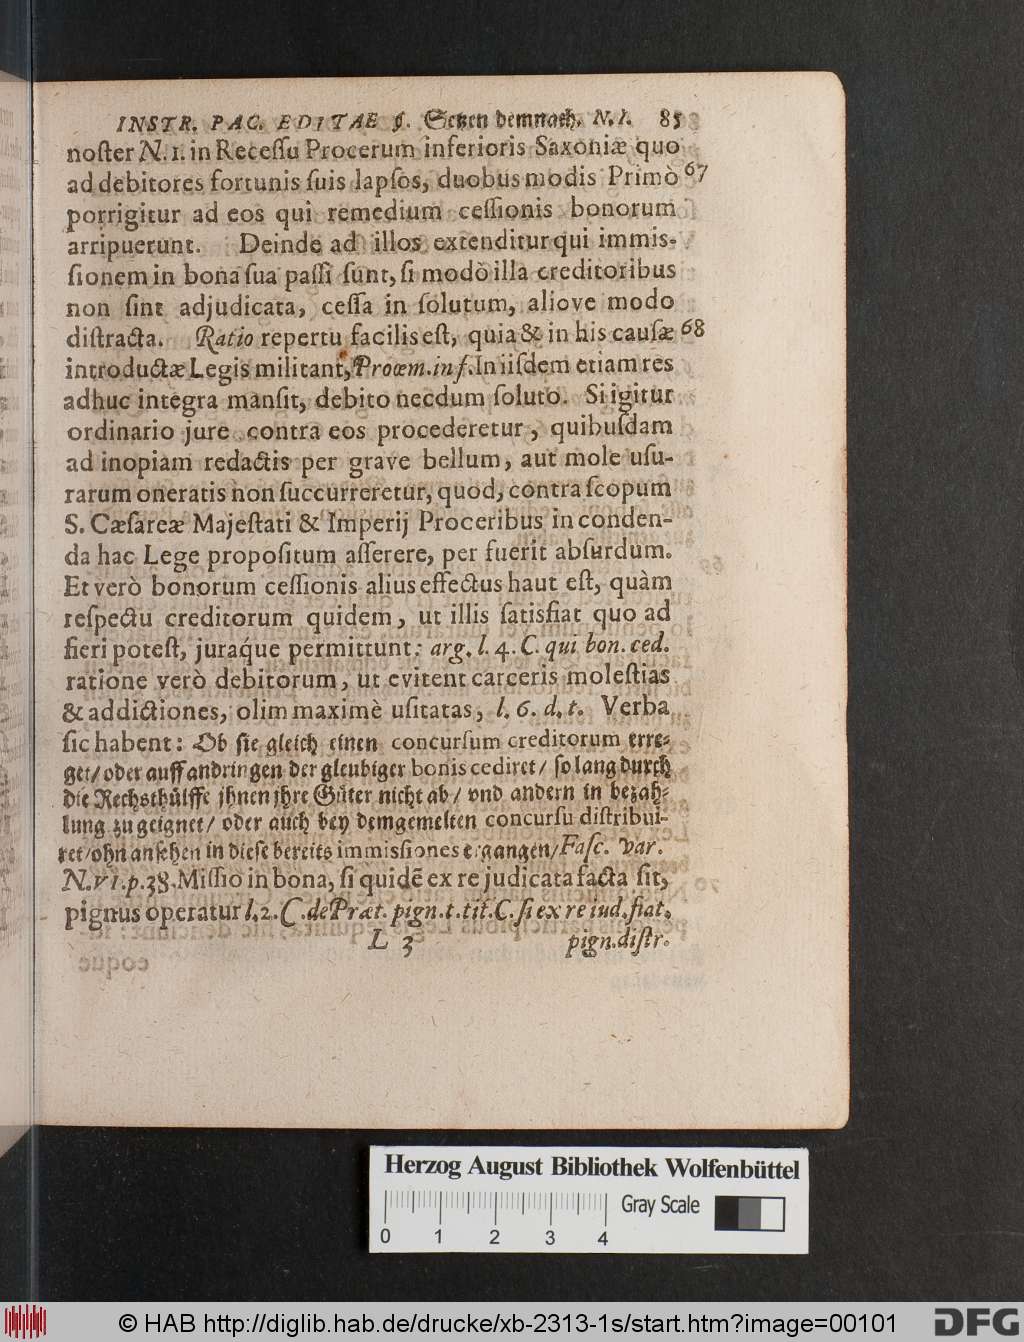 INSTR. PAC. EDITAE §. Setzen demnach. N. I. 85
noſter N. 1. in Receſſu Procerum inferioris Saxoniæ quo
ad debitores fortunis ſuis lapſos, duobus modis Primò 67
porrigitur ad eos qui remedium ceſſionis bonorum
arripuerunt. Deinde ad illos extenditur qui immiſ-
ſionem in bona ſua paſſi ſunt, ſi modò illa creditoribus
non ſint adjudicata, ceſſa in ſolutum, aliove modo
diſtracta. Ratio repertu facilis eſt, quia & in his cauſæ 68
introductæ Legis militant, Proœm. inf. In iiſdem etiam res
adhuc integra manſit, debito necdum ſoluto. Si igitur
ordinario jure contra eos procederetur, quibuſdam
ad inopiam redactis per grave bellum, aut mole uſu-
rarum oneratis non ſuccurreretur, quod, contra ſcopum
S. Cæſareæ Majeſtati & Imperij Proceribus in conden-
da hac Lege propoſitum aſſerere, per fuerit abſurdum.
Et verò bonorum ceſſionis alius effectus haut eſt, quàm
reſpectu creditorum quidem, ut illis ſatisfiat quo ad
fieri poteſt, juraq́ue permittunt: arg. l. 4. C. qui bon. ced.
ratione verò debitorum, ut evitent carceris moleſtias
& addictiones, olim maximè uſitatas, l. 6. d. t. Verba
ſic habent: Ob ſie gleich einen concurſum creditorum erre-
get/ oder auff andringen der gleubiger bonis cediret/ ſo lang durch
die Rechsthülffe jhnen jhre Güter nicht ab/ vnd andern in bezah-
lung zu geignet/ oder auch bey demgemelten concurſu diſtribui-
ret/ ohn anſehen in dieſe bereits immiſſiones ergangen/ Faſc. var.
N. VI. p. 38. Miſſio in bona, ſi quidē ex re judicata facta ſit,
pignus operatur l. 2. C. de Præt. pign. t. tit. C. ſi ex re iud. fiat,
L 3 pign. diſtr.
Herzog August Bibliothek Wolfenbüttel
Gray Scale
0 1 2 3 4
© HAB http://diglib.hab.de/drucke/xb-2313-1s/start.htm?image=00101
DFG